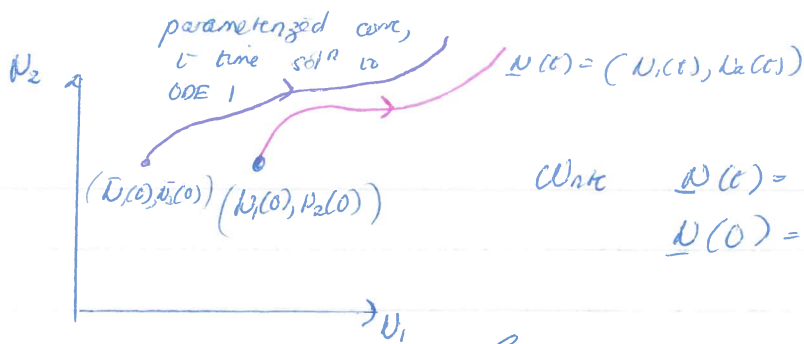 parameterized curve,
t time soln to
ODE 1
N2
N(t) = (N1(t), N2(t))
(N̄1(0), N̄2(0)) (N1(0), N2(0))
Write N(t) =
N(0) =
N1